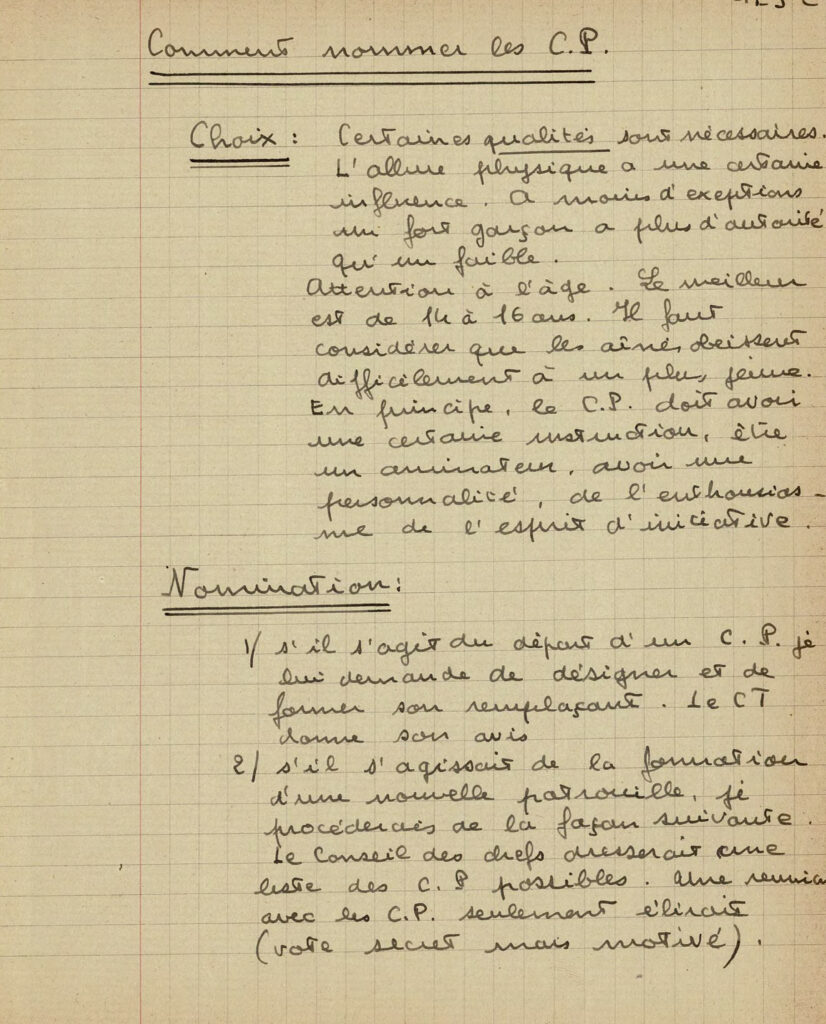 Comment nommer les C.P.
Choix : Certaines qualités sont nécessaires.
L'allure physique a une certaine
influence. A moins d'exeptions
un fort garçon a plus d'autorité
qu'un faible.
Attention à l'âge. Le meilleur
est de 14 à 16 ans. Il faut
considérer que les aînés obeissent
difficilement à un plus jeune.
En principe, le C.P. doit avoir
une certaine instruction, être
un animateur, avoir une
personnalité, de l'enthousias-
me de l'esprit d'initiative.
Nomination :
1/ s'il s'agit du départ d'un C.P. je
lui demande de désigner et de
former son remplaçant. Le CT
donne son avis
2/ s'il s'agissait de la formation
d'une nouvelle patrouille, je
procéderais de la façon suivante.
Le Conseil des chefs dresserait une
liste des C.P possibles. Une reunio
avec les C.P. seulement élirait
(vote secret mais motivé).